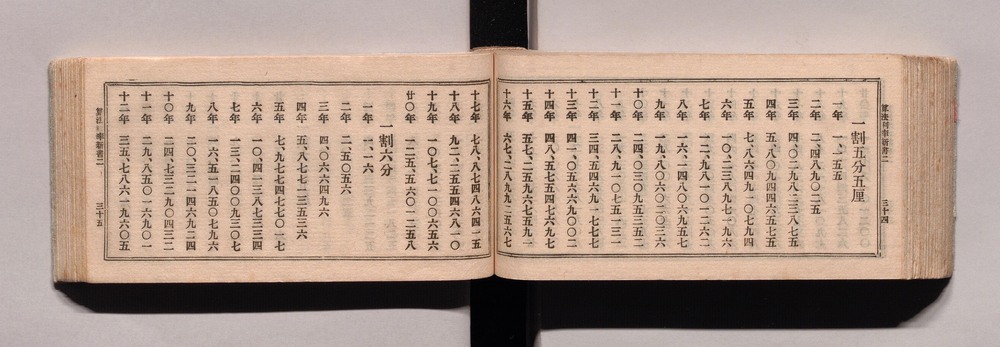 算法利率新書二　三十四
一割五分五厘
一年　一、一五五
二年　二、四八九〇二五
三年　四、〇二九八二三八七五
四年　五、八〇九四四六五七五
五年　七、八六四九一〇七九四
六年　一〇、二三八九七一九六
七年　一二、九八一〇一二六二
八年　一六、一四八〇六九五七
九年　一九、八〇六〇二〇三六
十〇年　二四、〇三〇九五三五二
十一年　二八、九一〇七五一三一
十二年　三四、五四六九一七七七
十三年　四一、〇五六六九〇〇二
十四年　四八、五七五四七六九七
十五年　五七、二五九六七五九一
十六年　六七、二八九九二五六七
十七年　七八、八七四八六四一五
十八年　九二、二五五四六八一〇
十九年　一〇七、七一〇〇六五六
廿〇年　一二五、五六〇一二五八
一割六分
一年　一、一六
二年　二、五〇五六
三年　四、〇六六四九六
四年　五、八七七一三五三六
五年　七、九七七四七七〇一七
六年　一〇、四一三八七三三四
七年　一三、二四〇〇九三〇七
八年　一六、五一八五〇七九六
九年　二〇、三一一四六九二四
十〇年　二四、七三二九〇四三二
十一年　二九、八五〇一六九〇一
十二年　三五、七八六一九六〇五
算法利率新書二　三十五